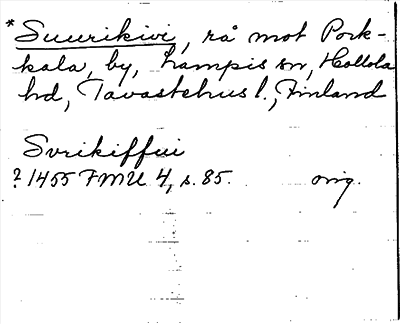 *Suurikivi, rå mot Pork-
kala, by, Lampis sn, Hollola
hd, Tavastehus l., Finland
Svrikiffui
? 1455 FMU 4, s. 85. orig.